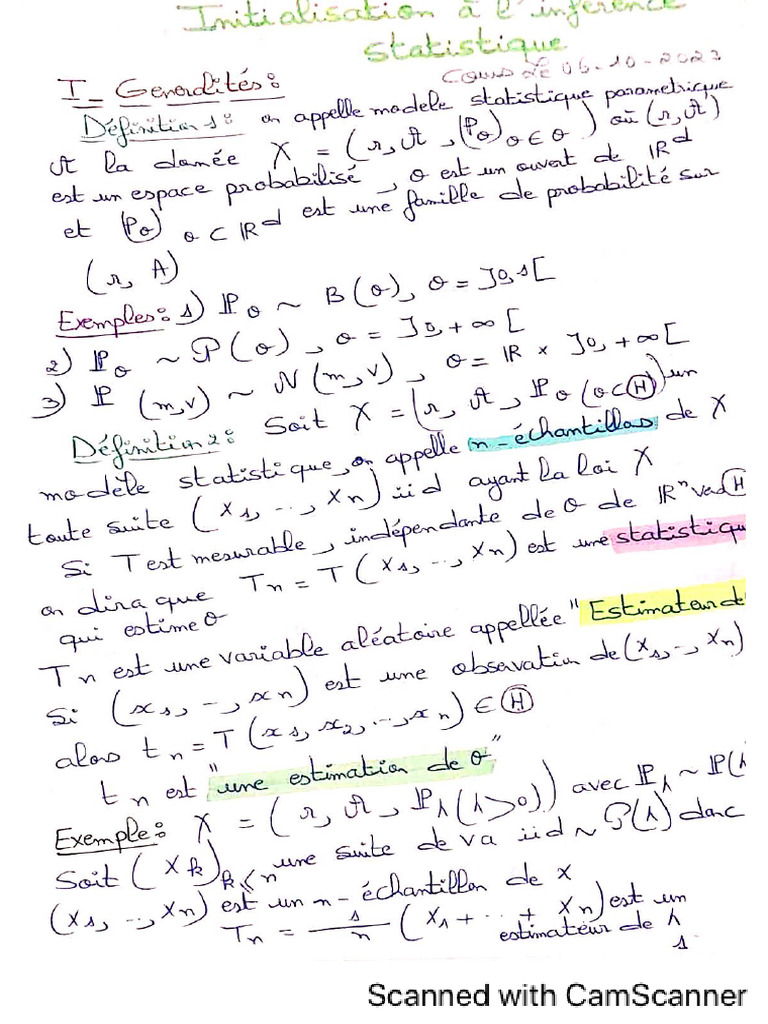 Initialisation à l'inférence
statistique
Cours Le 06-10-2023
I_ Generalités:
Définition 1: on appelle modele statistique parametrique
𝒜 la donnée X = (r, 𝒜, (ℙθ)θ∈Θ) où (r, 𝒜)
est un espace probabilisé, Θ est un ouvert de ℝᵈ
et (ℙθ) Θ⊂ℝᵈ est une famille de probabilité sur
(r, A)
Exemples: 1) ℙθ ~ B(θ), Θ = ]0,1[
2) ℙθ ~ 𝒫(θ), Θ = ]0,+∞[
3) ℙ(m,v) ~ 𝒩(m,v), Θ = ℝ × ]0,+∞[
Définition 2: Soit X = (r, 𝒜, ℙθ(θ⊂Θ) un
modèle statistique, on appelle n-échantillons de X
toute suite (X1, .., Xn) iid ayant la loi X
Si T est mesurable, indépendante de θ de ℝⁿ vad Θ
on dira que Tn = T(X1, .., Xn) est une statistiqu
qui estime θ
Tn est une variable aléatoire appellée "Estimateur de
Si (x1, .., xn) est une observation de (X1, .., Xn)
alors tn = T(x1, x2, .., xn) ∈ Θ
tn est "une estimation de θ"
Exemple: X = (r, 𝒜, ℙλ(λ>0)) avec ℙλ ~ ℙ(λ
Soit (Xk)k≤n une suite de va iid ~ 𝒫(λ) donc
(X1, .., Xn) est un n-échantillon de x
Tn = 1/n (X1 + ... + Xn) est un
estimateur de λ
1
Scanned with CamScanner